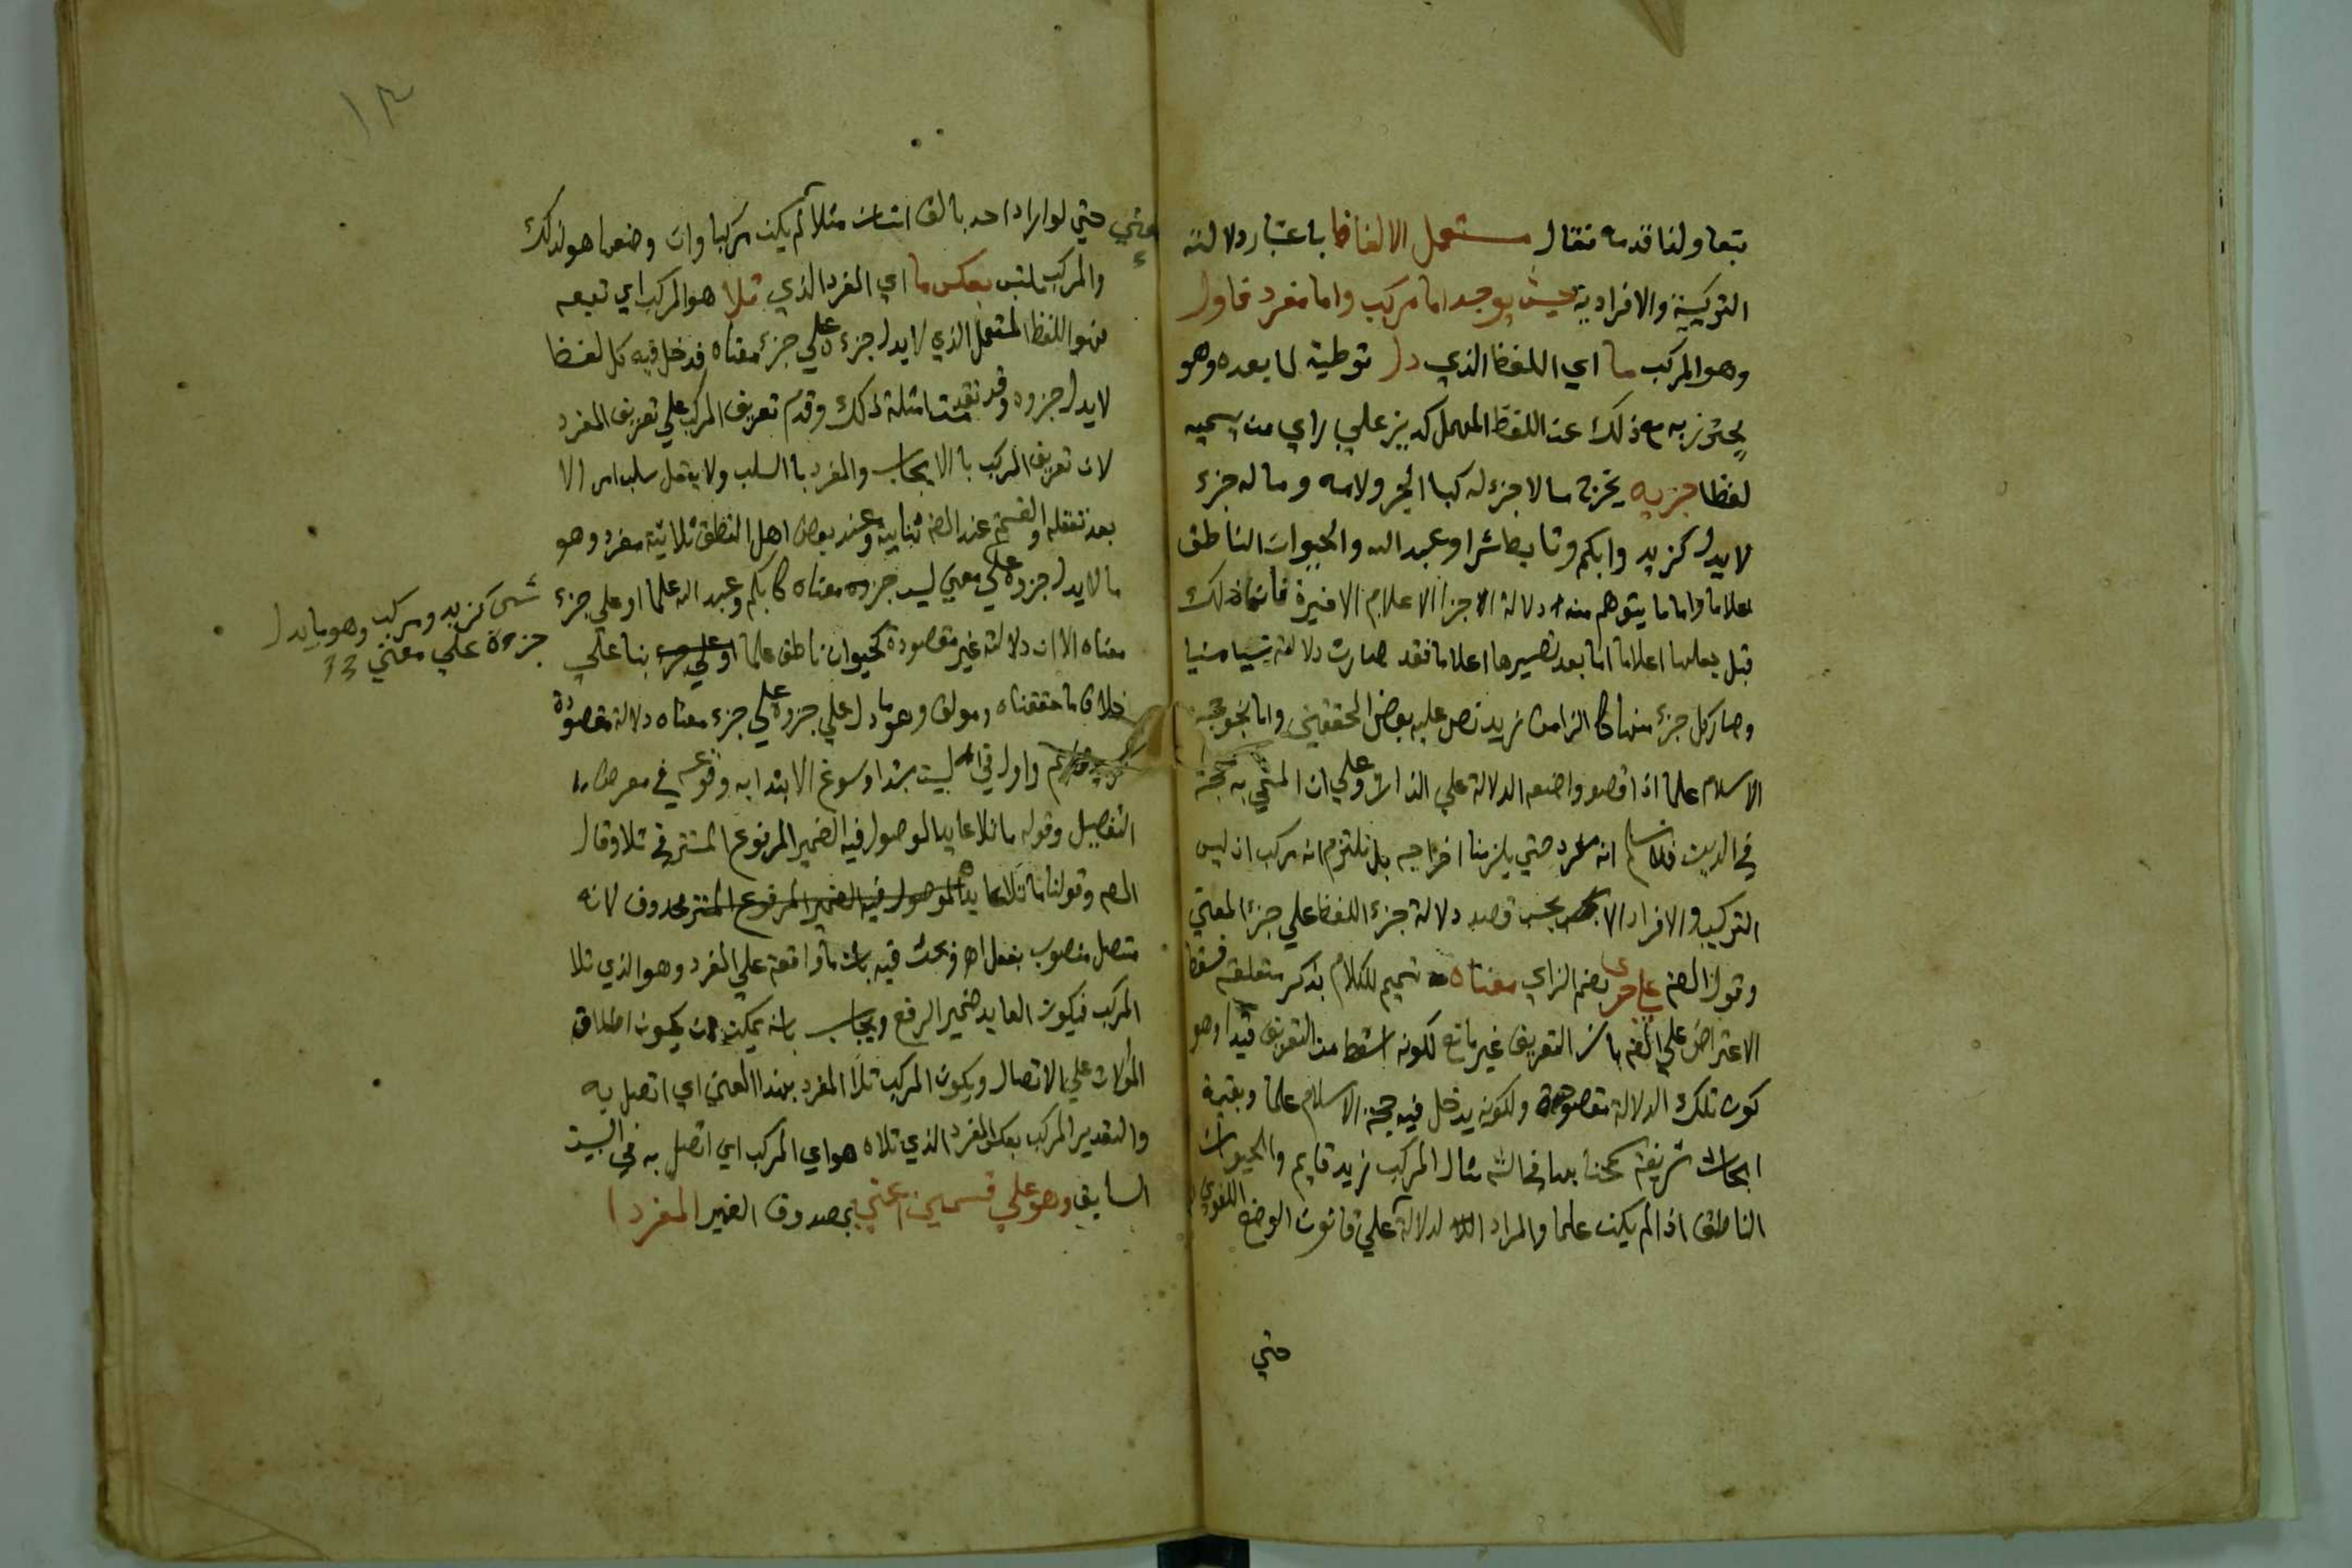 بتعاولنا قدمه فقال مستعمل الالفاظ باعتبار دلالته
التركيبية والافرادية حيث يوجد اما مركب واما مفرد فاول
وهو المركب ما اي اللفظ الذي دل توطية لما بعده وهو
يحترز به مع ذلك عن اللفظ المهمل كديز علي راي من يسميه
لفظا جزيه يخرج ما لا جزء له كبا الجر ولامه وما له جزء
لا يدل كزيد وابكم وتابط شرا وعبد الله والحيوان الناطق
اعلاما واما ما يتوهم منه دلالة الاجزا الاعلام الاخيرة فانما ذلك
قبل جعلها اعلاما اما بعد تصييرها اعلاما فقد صارت دلالته نسيا منسيا
وصار كل جزء منها كالزا من زيد نص عليه بعض المحققين واما نحو حجة
الاسلام علما اذا قصد واضعه الدلالة علي الذات وعلي ان المسمي به حجة
في الدين فلا نسلم انه مفرد حتي يلزمنا اخراجه بل نلتزم انه مركب اذ ليس
التركيب والافراد الا بحسب قصد دلالة جزء اللفظ علي جزء المعني
وقول المص علي جزى بضم الزاي معناه تتميم للكلام بذكر متعلقه فسقط
الاعتراض علي المص بان التعريف غير مانع لكونه اسقط من التعريف قيدا وهو
كون تلك الدلالة مقصودة ولكونه يدخل فيه حجة الاسلام علما وبقية
ابحاث شريفة مثال المركب زيد قايم والحيوان
الناطق اذا لم يكن علما والمراد الدلالة علي قانون الوضع اللغوي
حتي
١٣
حتي لو اراد احد بالف انسان مثلا لم يكن مركبا وان وضعها هو لذلك
والمركب ملتبس بعكس ما اي المفرد الذي تلا هو المركب اي تبعه
فهو اللفظ المستعمل الذي لا يدل جزءه علي جزء معناه فدخل فيه كل لفظ
لا يدل جزوه وقد تقدمت امثلة ذلك وقدم تعريف المركب علي تعريف المفرد
لان تعريف المركب بالايجاب والمفرد بالسلب ولا يعقل سلب امر الا
بعد تعقله والقسمة عند المص ثنايية وعند بعض اهل المنطق ثلاثية مفرد وهو
ما لا يدل جزوه علي معني ليس جزوه معناه كابكم وعبد الله علما او علي جزء
معناه الا ان دلالته غير مقصودة كحيوان ناطق علما بنا علي
شي كزيد ومركب وهو ما يدل
جزوه علي معني
خلاف ما حققناه ومولف وهو ما دل علي جزوه علي جزء معناه دلالة مقصودة
واول في البيت مبتدا وسوغ الابتدا به وقوعه في معرض
التفصيل وقوله ما تلا عايد الموصول فيه الضمير المرفوع المستتر في تلا وقال
المص وقولنا ما تلا عايد الموصول فيه الضمير المرفوع المستتر محذوف لانه
متصل منصوب بفعل اهـ وبحث فيه بان ما واقعة علي المفرد وهو الذي تلا
المركب فيكون العايد ضمير الرفع ويجاب بانه يمكن ان يكون اطلاق
علي الاتصال ويكون المركب تلا المفرد بهذا المعني اي اتصل به
والتقدير المركب بعكس المفرد الذي تلاه هو اي المركب اي اتصل به في البيت
السابق وهو علي قسمين اعني بمصدوق الضمير المفردا